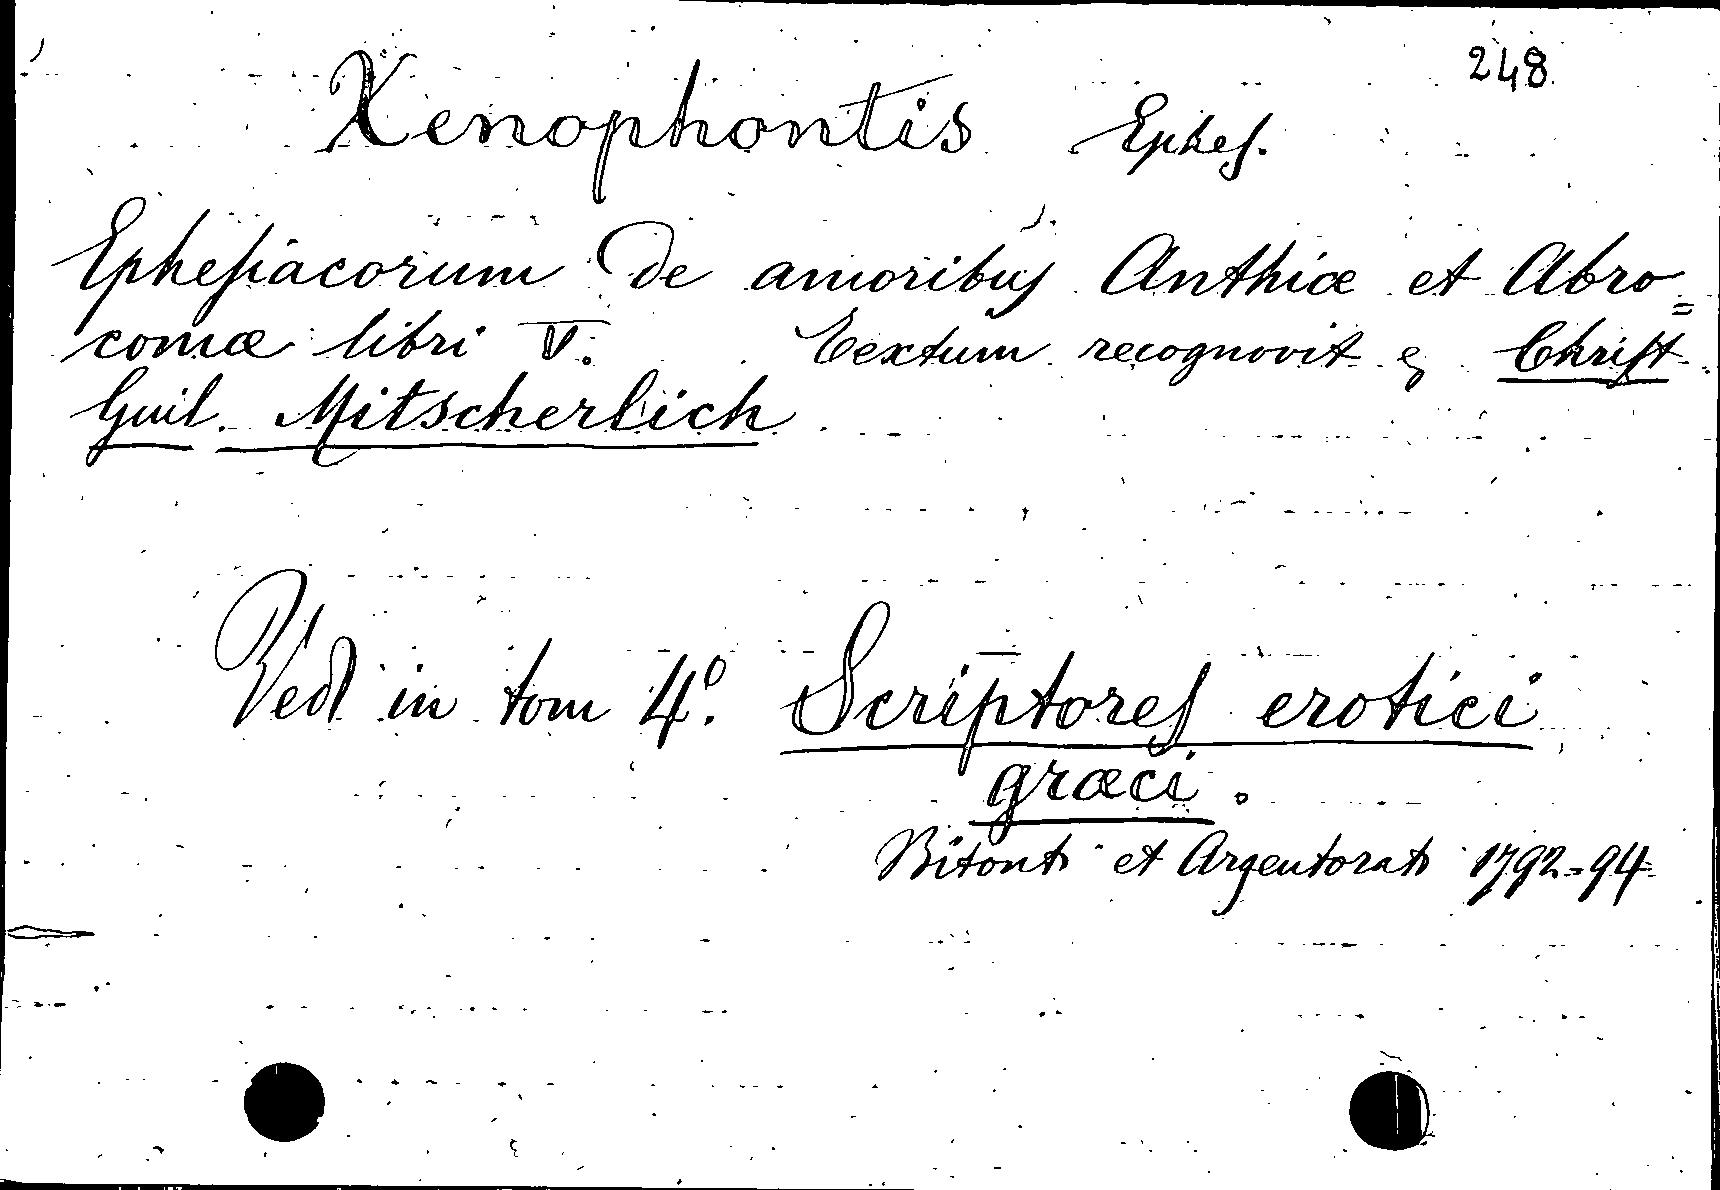 248
Xenophontis Ephes.
Ephesiacorum De amoribus Anthiæ et Abro=
comæ libri V. Textum recognovit &c Christ.
Guil. Mitscherlich
Ved in tom 4º. Scriptores erotici
græci.
Bitonti et Argentorati 1792-94